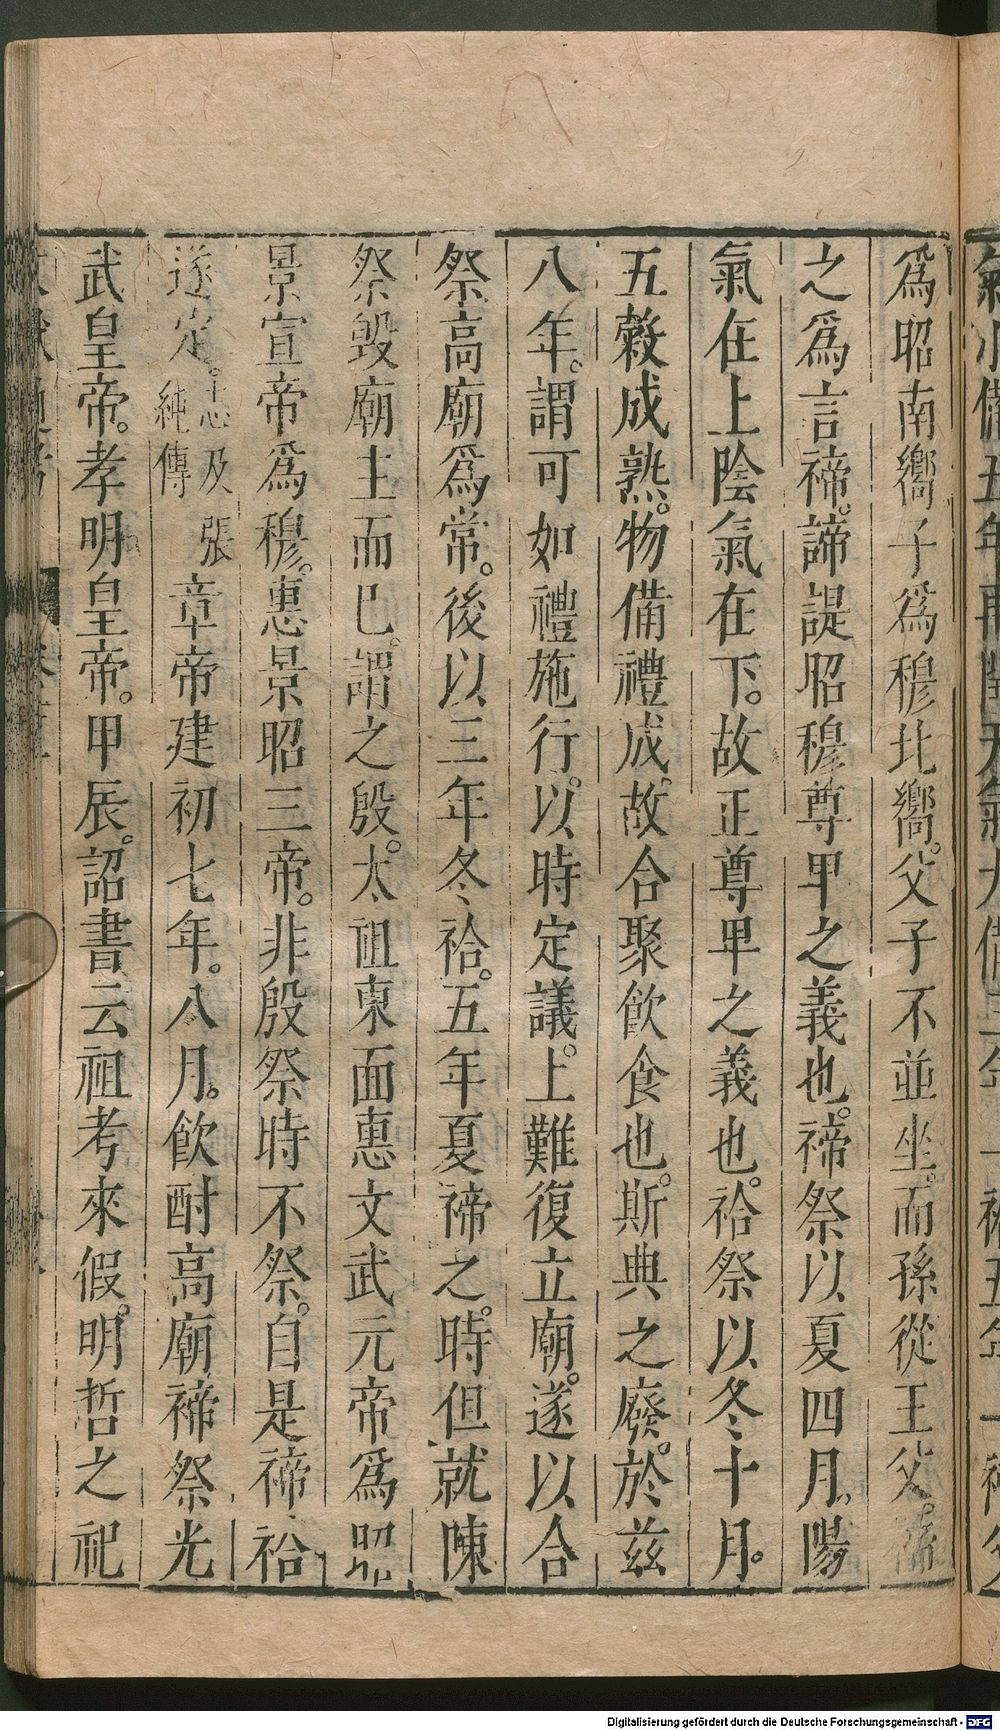 爲昭南嚮子爲穆北嚮。父子不並坐。而孫從王父。禘
之爲言諦。諦諟昭穆尊卑之義也。禘祭以夏四月。陽
氣在上陰氣在下。故正尊卑之義也。祫祭以冬十月。
五穀成熟。物備禮成。故合聚飲食也。斯典之廢。於茲
八年。謂可如禮施行。以時定議。上難復立廟。遂以合
祭高廟爲常。後以三年冬祫。五年夏禘之。時但就陳
祭毀廟主而已。謂之殷。太祖東面惠文武元帝爲昭
景宣帝爲穆。惠景昭三帝。非殷祭時不祭。自是禘祫
遂定。志及張純傳章帝建初七年。八月。飲酎高廟禘祭光
武皇帝。孝明皇帝。甲辰。詔書云祖考來假。明哲之祀
Digitalisierung gefördert durch die Deutsche Forschungsgemeinschaft - DFG